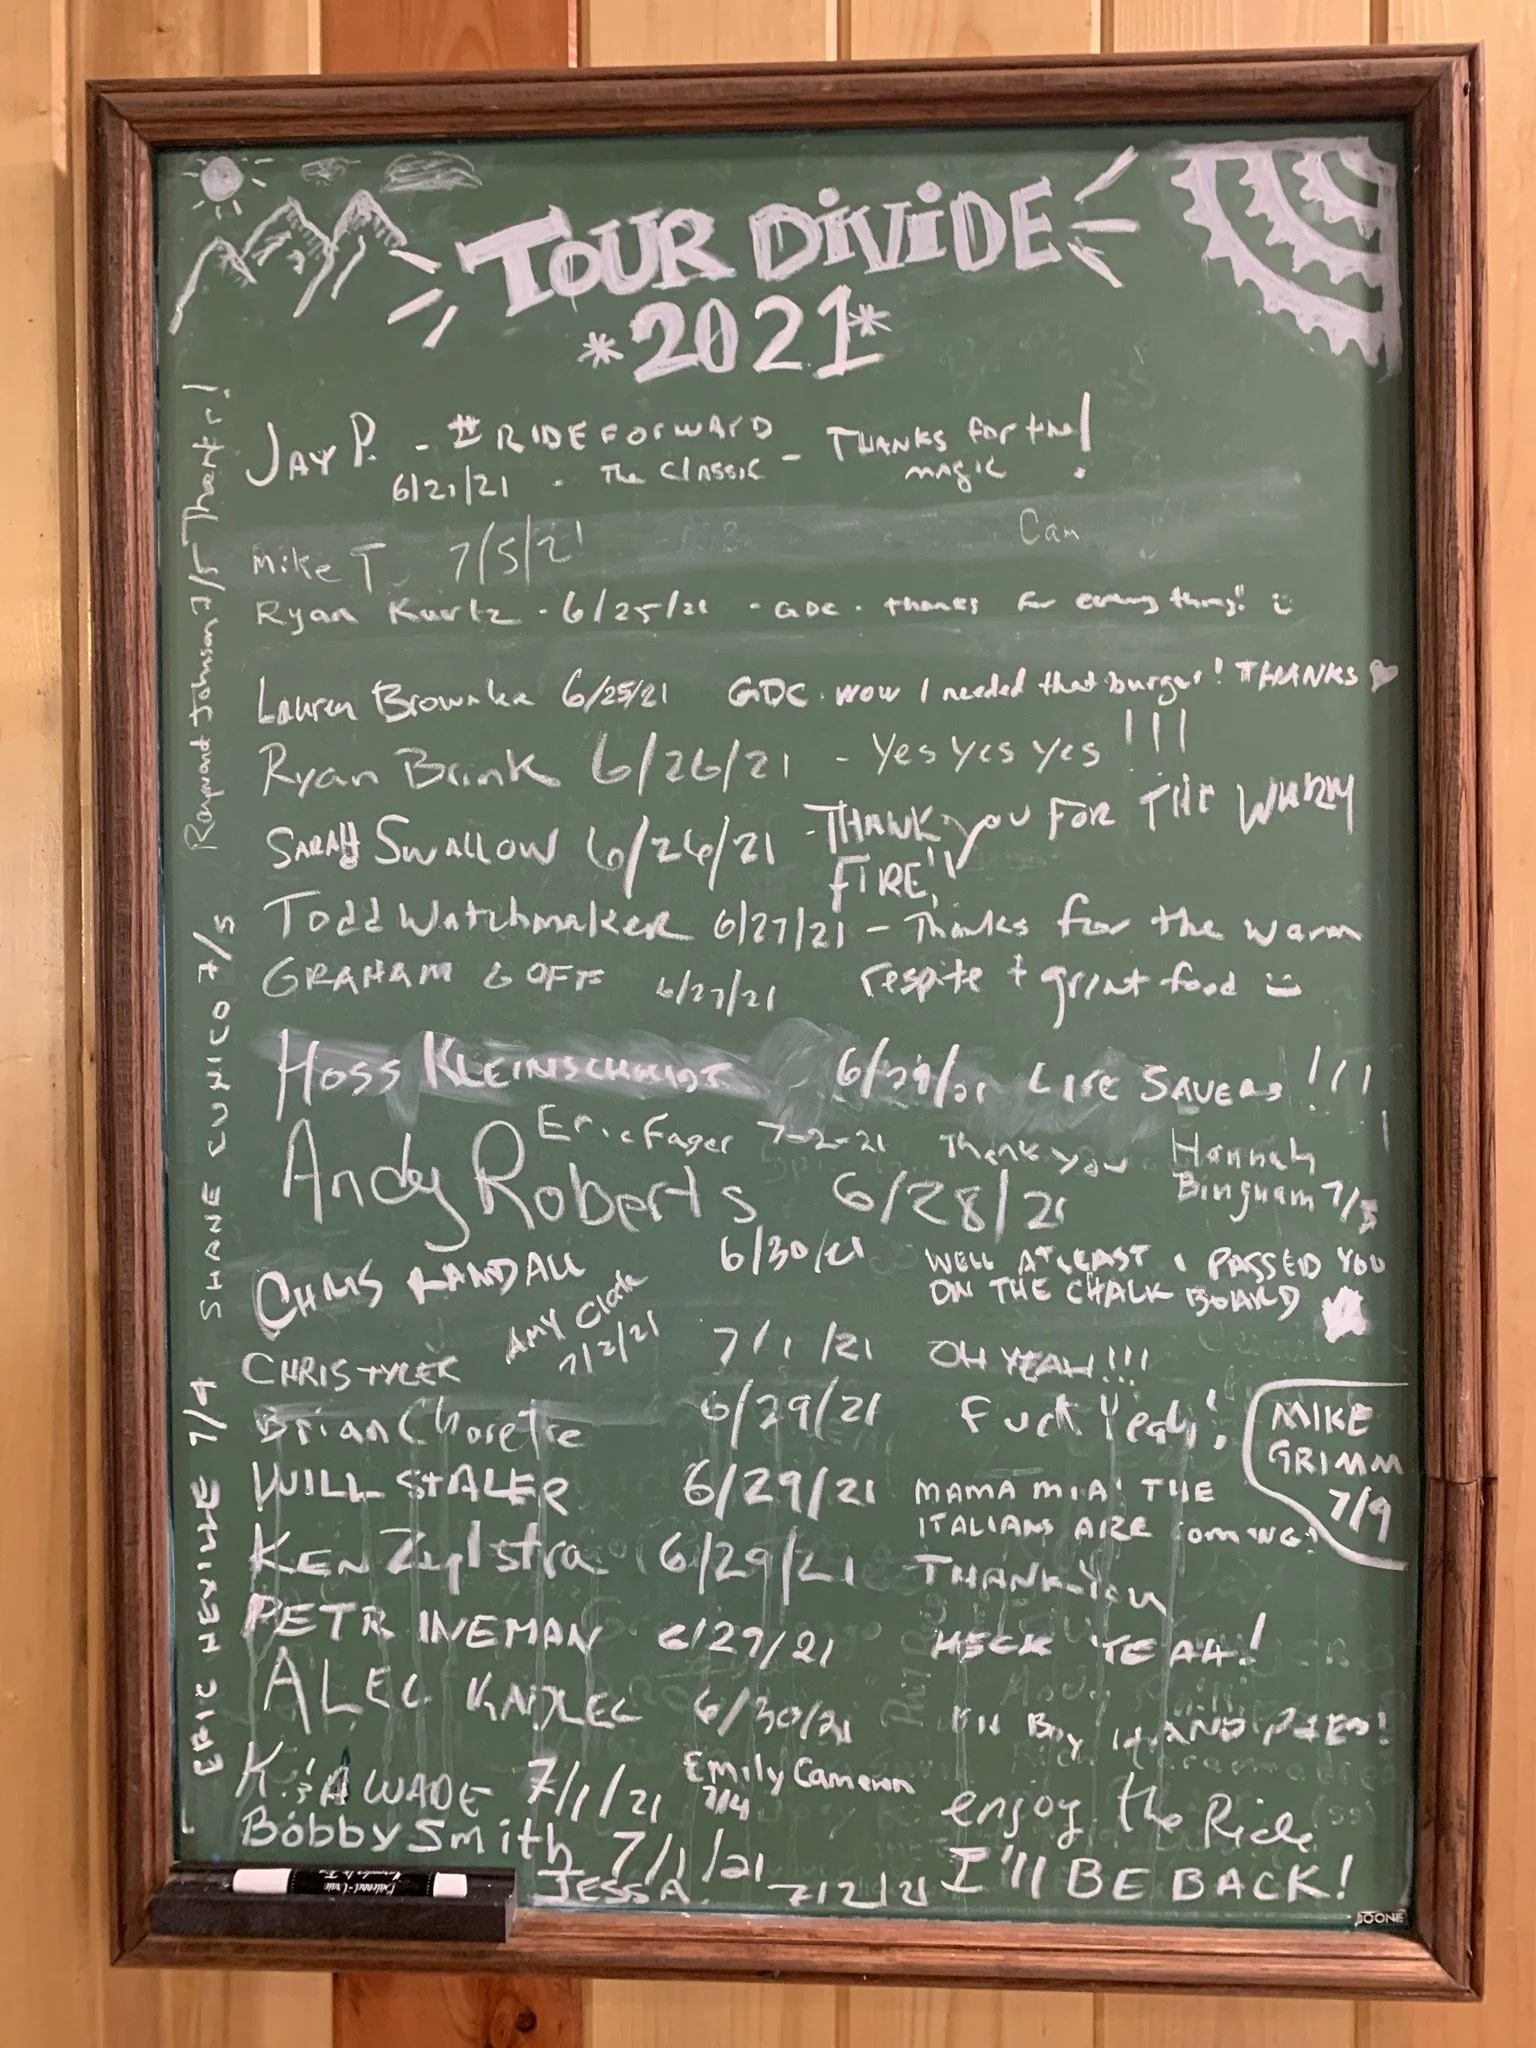 TOUR DIVIDE
*2021*
JAY P. - #RIDEFORWARD - THANKS for the magic!
6/21/21 - The CLASSIC
Mike T 7/5/21 Cam
Ryan Kurtz - 6/25/21 - GDC. thanks for everything!! :)
Lauren Brownlee 6/25/21 GDC. wow I needed that burger! THANKS ♥
Ryan Brink 6/26/21 - Yes Yes Yes !!!
SARAH SWALLOW 6/26/21 - THANK YOU FOR THE WARM
FIRE!!
Todd Watchmaker 6/27/21 - Thanks for the warm
GRAHAM GOFF 6/27/21 respite + great food :)
HOSS KLEINSCHMIDT 6/29/21 LIFE SAVERS !!!
Eric Fager 7-2-21 Thank you
Hannah
Bingham 7/3
Andy Roberts 6/28/21
CHRIS RANDALL 6/30/21 WELL AT LEAST I PASSED YOU
ON THE CHALK BOARD
AMY Clark
7/2/21
CHRIS TYLER 7/1/21 OH YEAH!!!
Brian Chorette 6/29/21 Fuck Yeah!
MIKE
GRIMM
7/9
WILL STALER 6/29/21 MAMA MIA! THE
ITALIANS ARE COMING!
KEN Zylstra 6/29/21 THANK-YOU
PETR INEMAN 6/29/21 HECK YEAH!
ALEC 6/30/21
K & A WADE 7/1/21 enjoy the Ride
Emily Cameron
7/4
Bobby Smith 7/1/21 I'll BE BACK!
JESSA. 7/2/21
Raymond Johnson 7/5 Thanks!
SHANE CUNICO 7/5
ERIC NEVILLE 7/4
BOONE